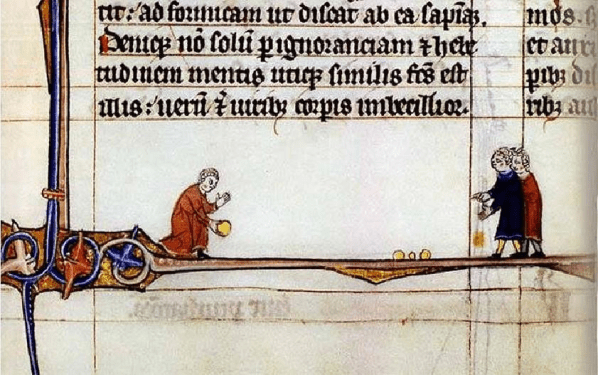 tit: ad formicam ut discat ab ea sapiā.
Deniqꝫ nō solū ꝑ ignoranciam ⁊ hebe
tudinem mentis utiqꝫ similis fcs̄ est
illis: uerū ⁊ uiribꝫ corꝑis imbecillior.
mos.
et
pibꝫ
ribꝫ